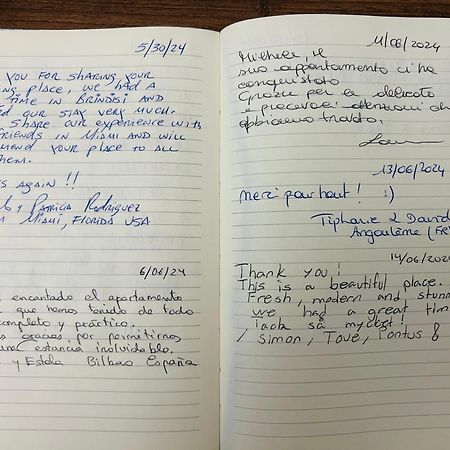 5/30/24
YOU FOR SHARING YOUR
PLACE, WE HAD A
TIME IN BRINDISI AND
OUR STAY VERY MUCH.
SHARE OUR EXPERIENCE WITH
FRIENDS IN MIAMI AND WILL
YOUR PLACE TO ALL
AGAIN !!
y PATRICIA RODRIGUEZ
MIAMI, FLORIDA USA
6/06/24
encantado el apartamento
que hemos tenido de todo
completo y práctico.
gracias por permitirnos
una estancia inolvidable.
y Estela Bilbao España
11/06/2024
suo appartamento ci ha
conquistato
Grazie per le delicate
e preziose attenzioni ch
abbiamo trovato.
13/06/2024
merci pour tout ! :)
Tiphanie & David
Angoulème (FR
14/06/2024
Thank you!
This is a beautiful place.
Fresh, modern and stunn
we had a great tim
Tack så mycket!
/ Simon, Tove, Pontus &